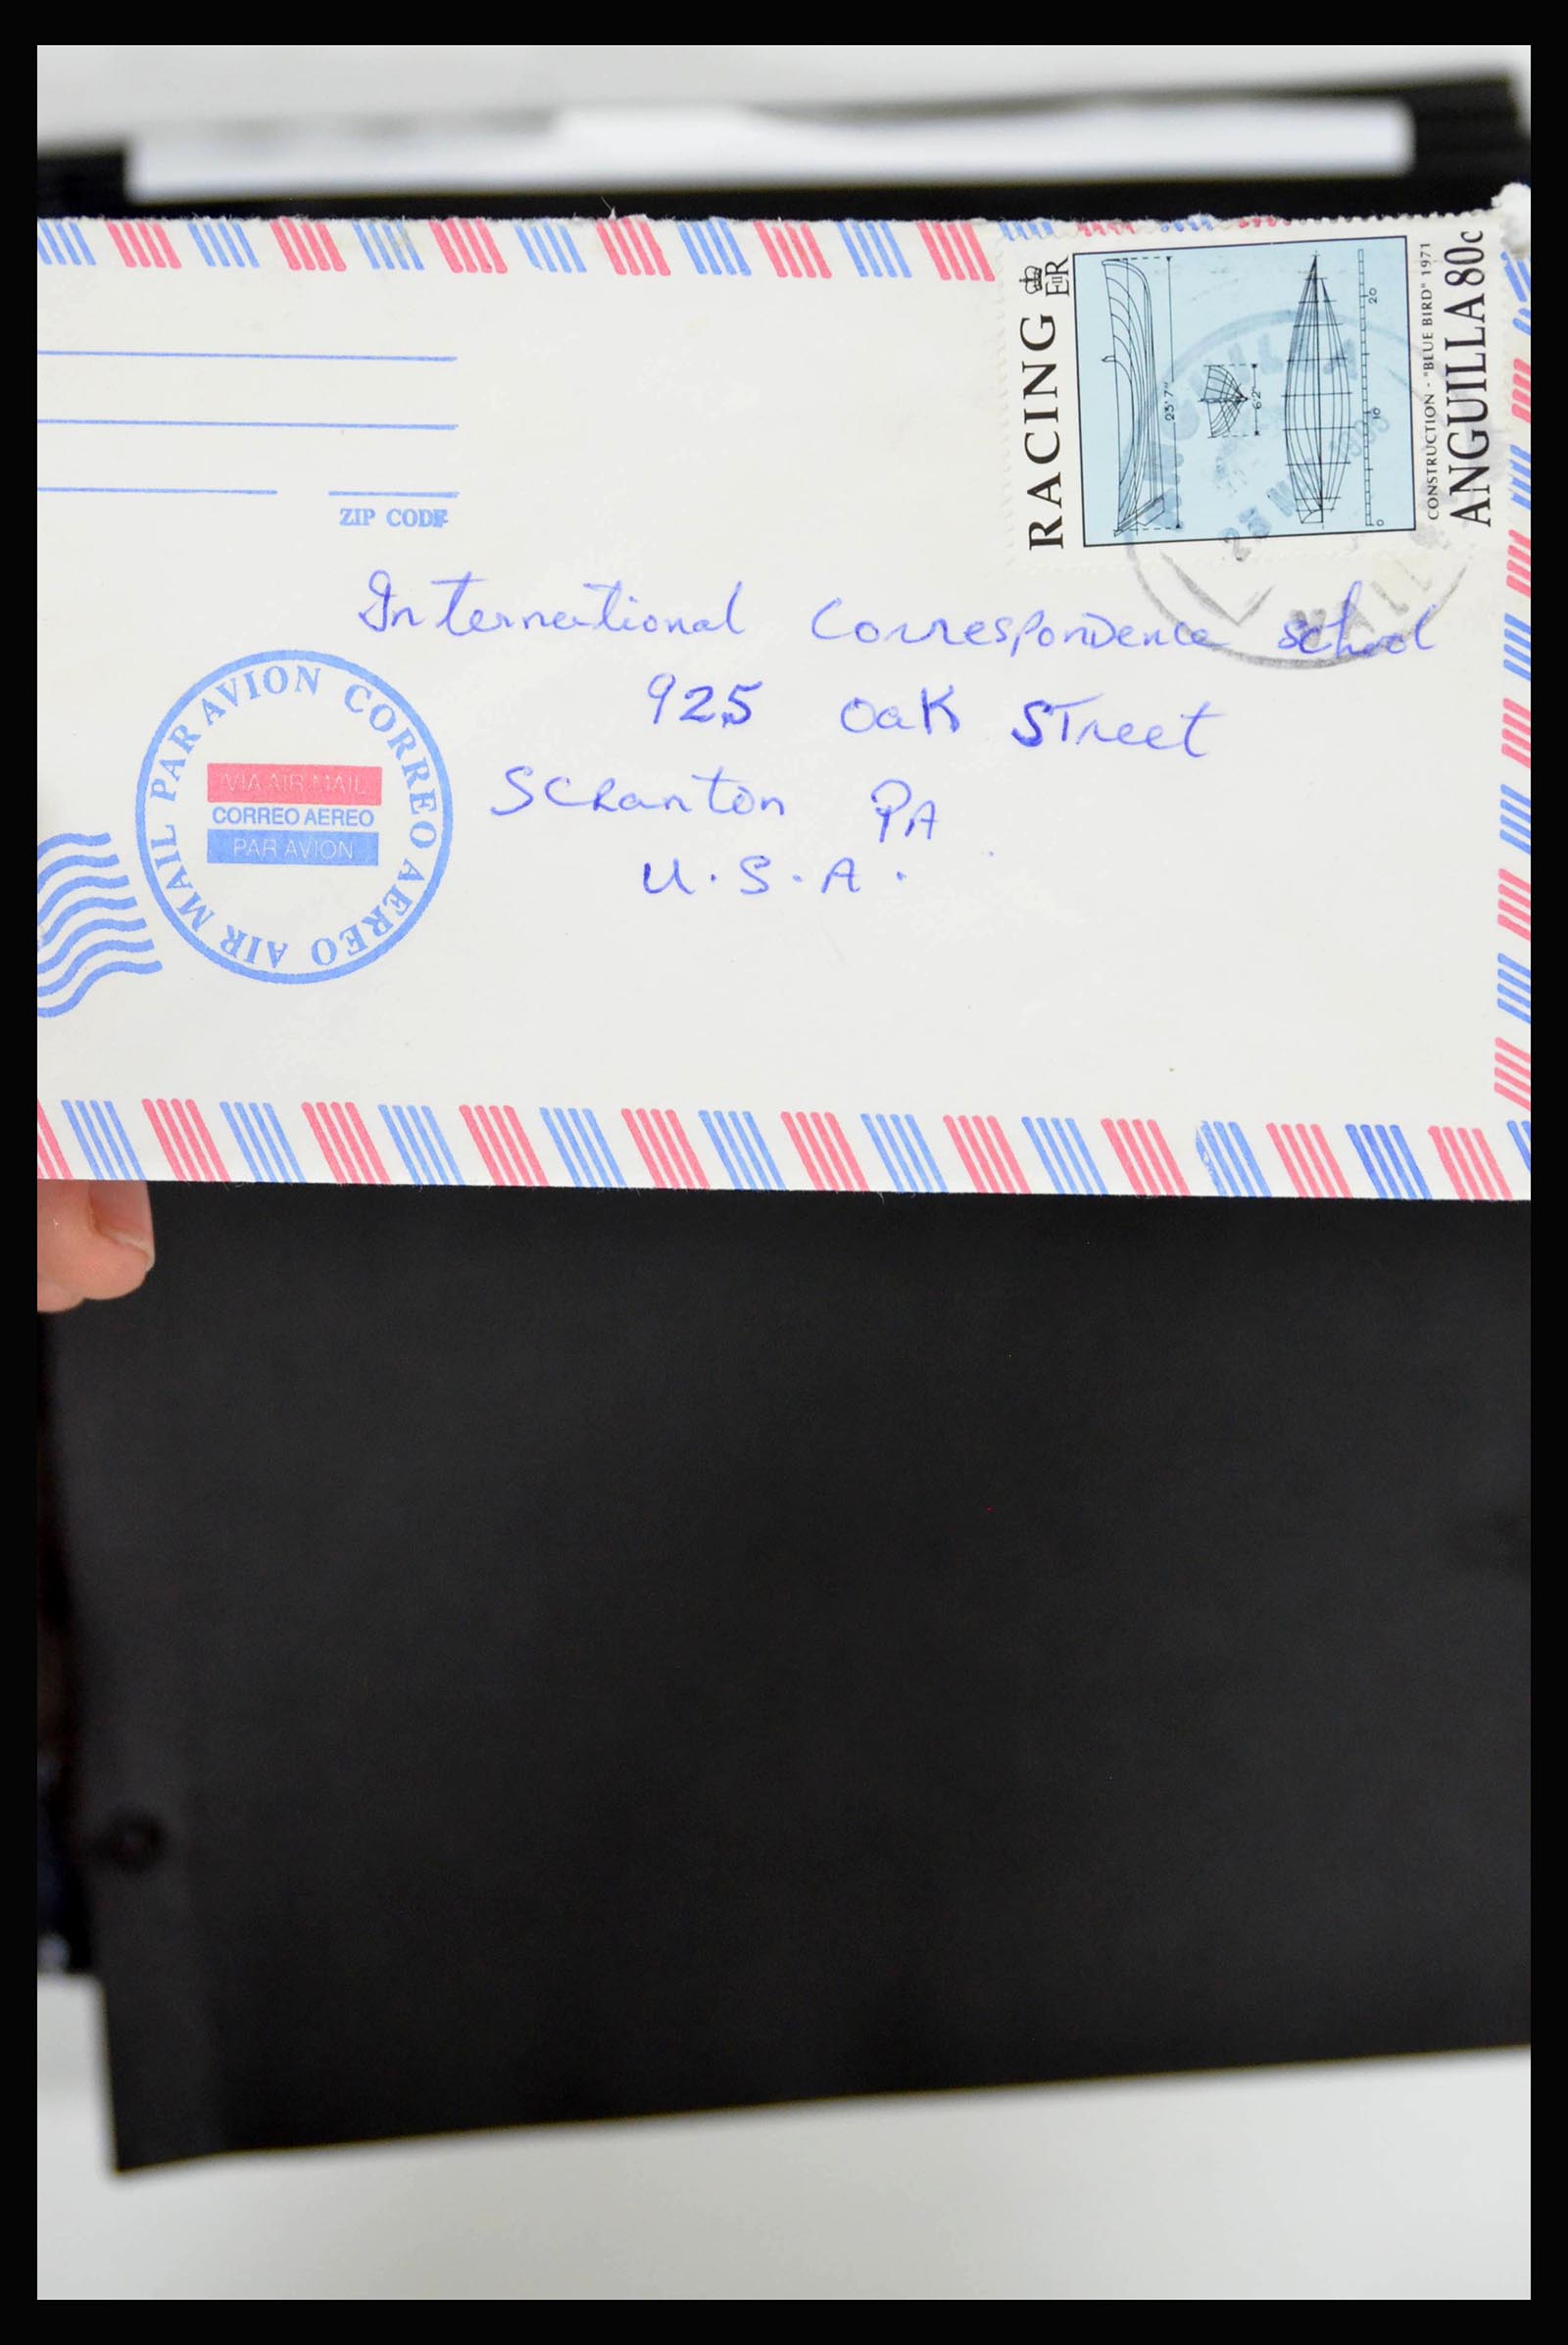 RACING
EIIR
23'7"
62"
0
10
20
CONSTRUCTION - "BLUE BIRD" 1971
ANGUILLA 80c
ZIP CODE
International Correspondence school
925 Oak Street
Scranton PA
U.S.A.
AIR MAIL PAR AVION CORREO AEREO
VIA AIR MAIL
CORREO AEREO
PAR AVION